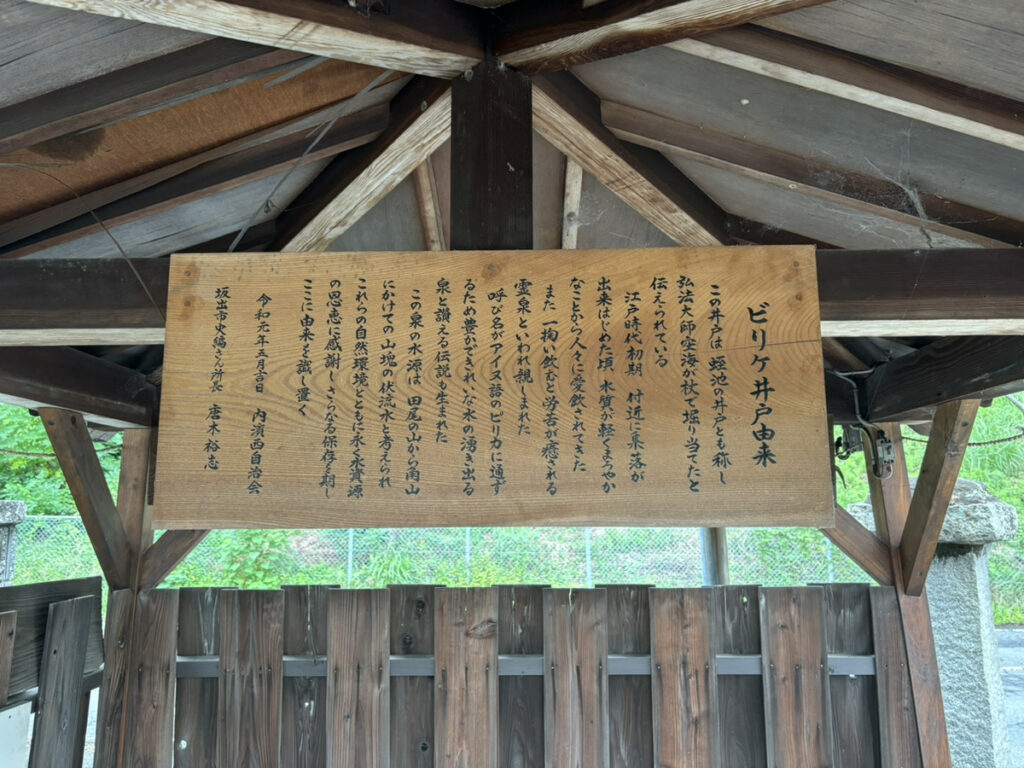 ビリケ井戸由来
この井戸は 蛭池の井戸とも称し
弘法大師空海が杖で堀り当てたと
伝えられている
江戸時代初期 付近に集落が
出来はじめた頃 水質が軽くまろやか
なことから人々に愛飲されてきた
また 一掬い飲むと労苦が癒される
霊泉といわれ親しまれた
呼び名がアイヌ語のピリカに通ず
るため豊かできれいな水の湧き出る
泉と讃える伝説も生まれた
この泉の水源は 田尾の山から南山
にかけての山塊の伏流水と考えられ
これらの自然環境とともに永く水資源
の恩恵に感謝しさらなる保存を期し
ここに由来を識し置く
令和元年五月吉日 内濱西自治会
坂出市史編さん所長 唐木裕志